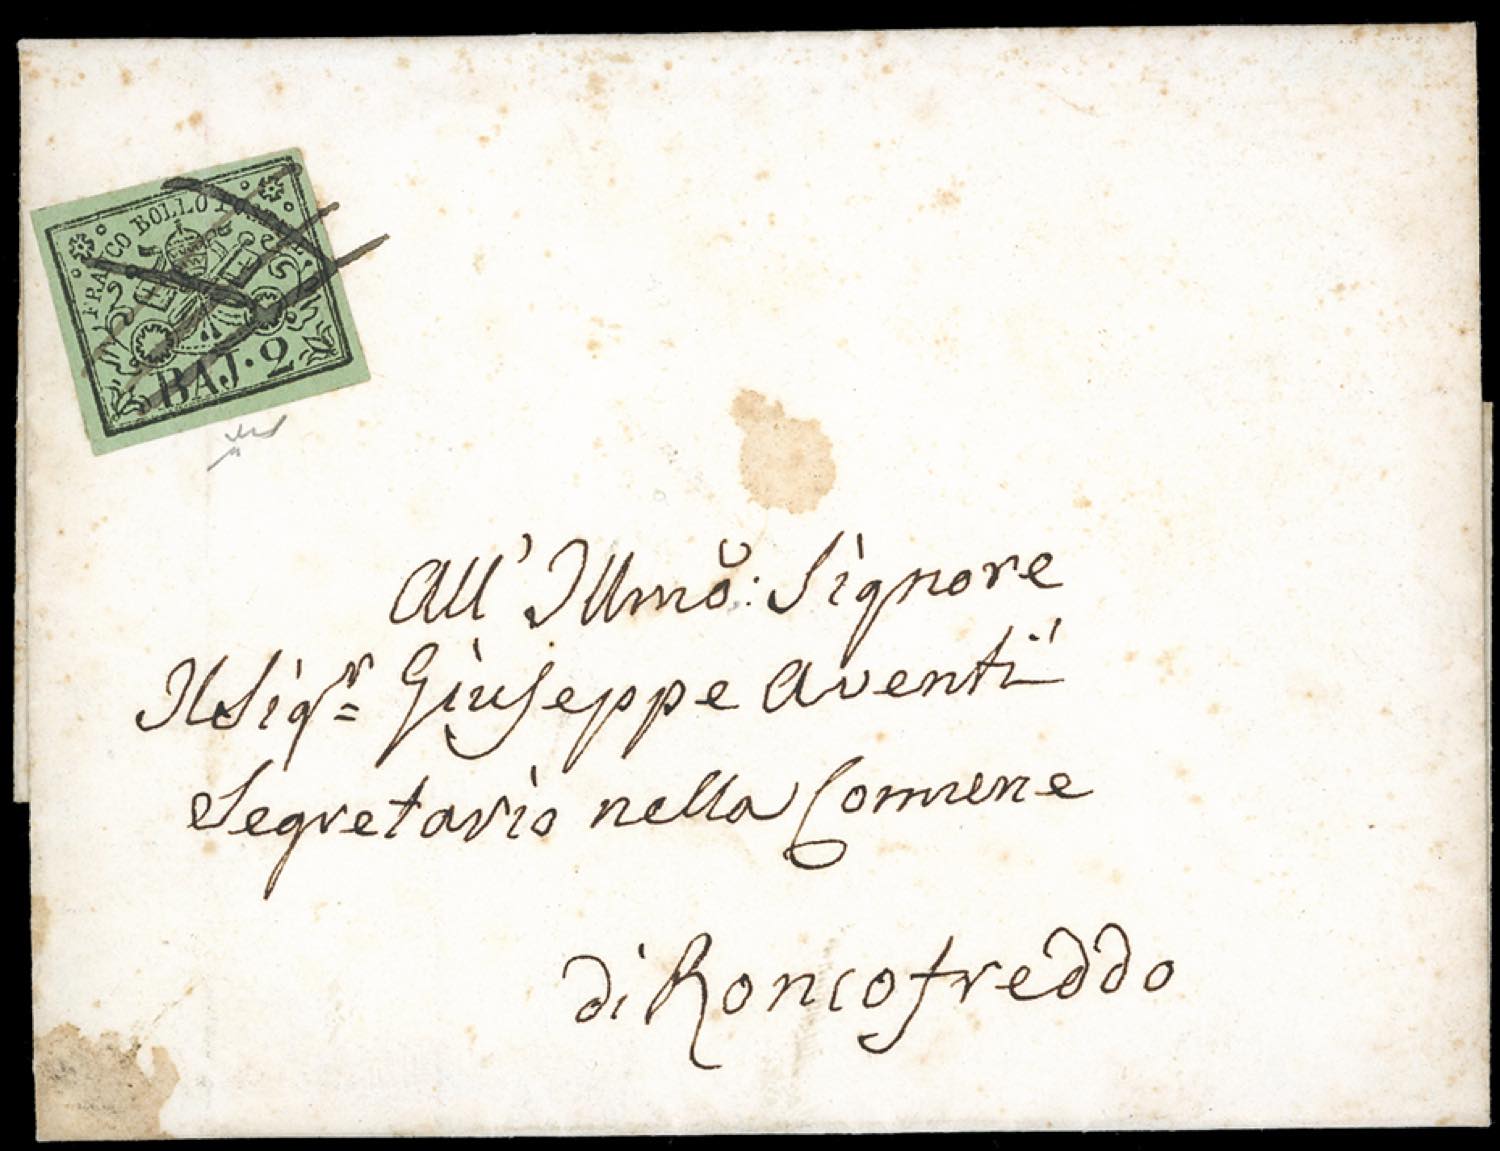 FRANCO BOLLO POSTALE
2
BAJ. 2
All' Illmo: Signore
Il Sigr= Giuseppe Aventi
Segretario nella Comune
di Roncofreddo